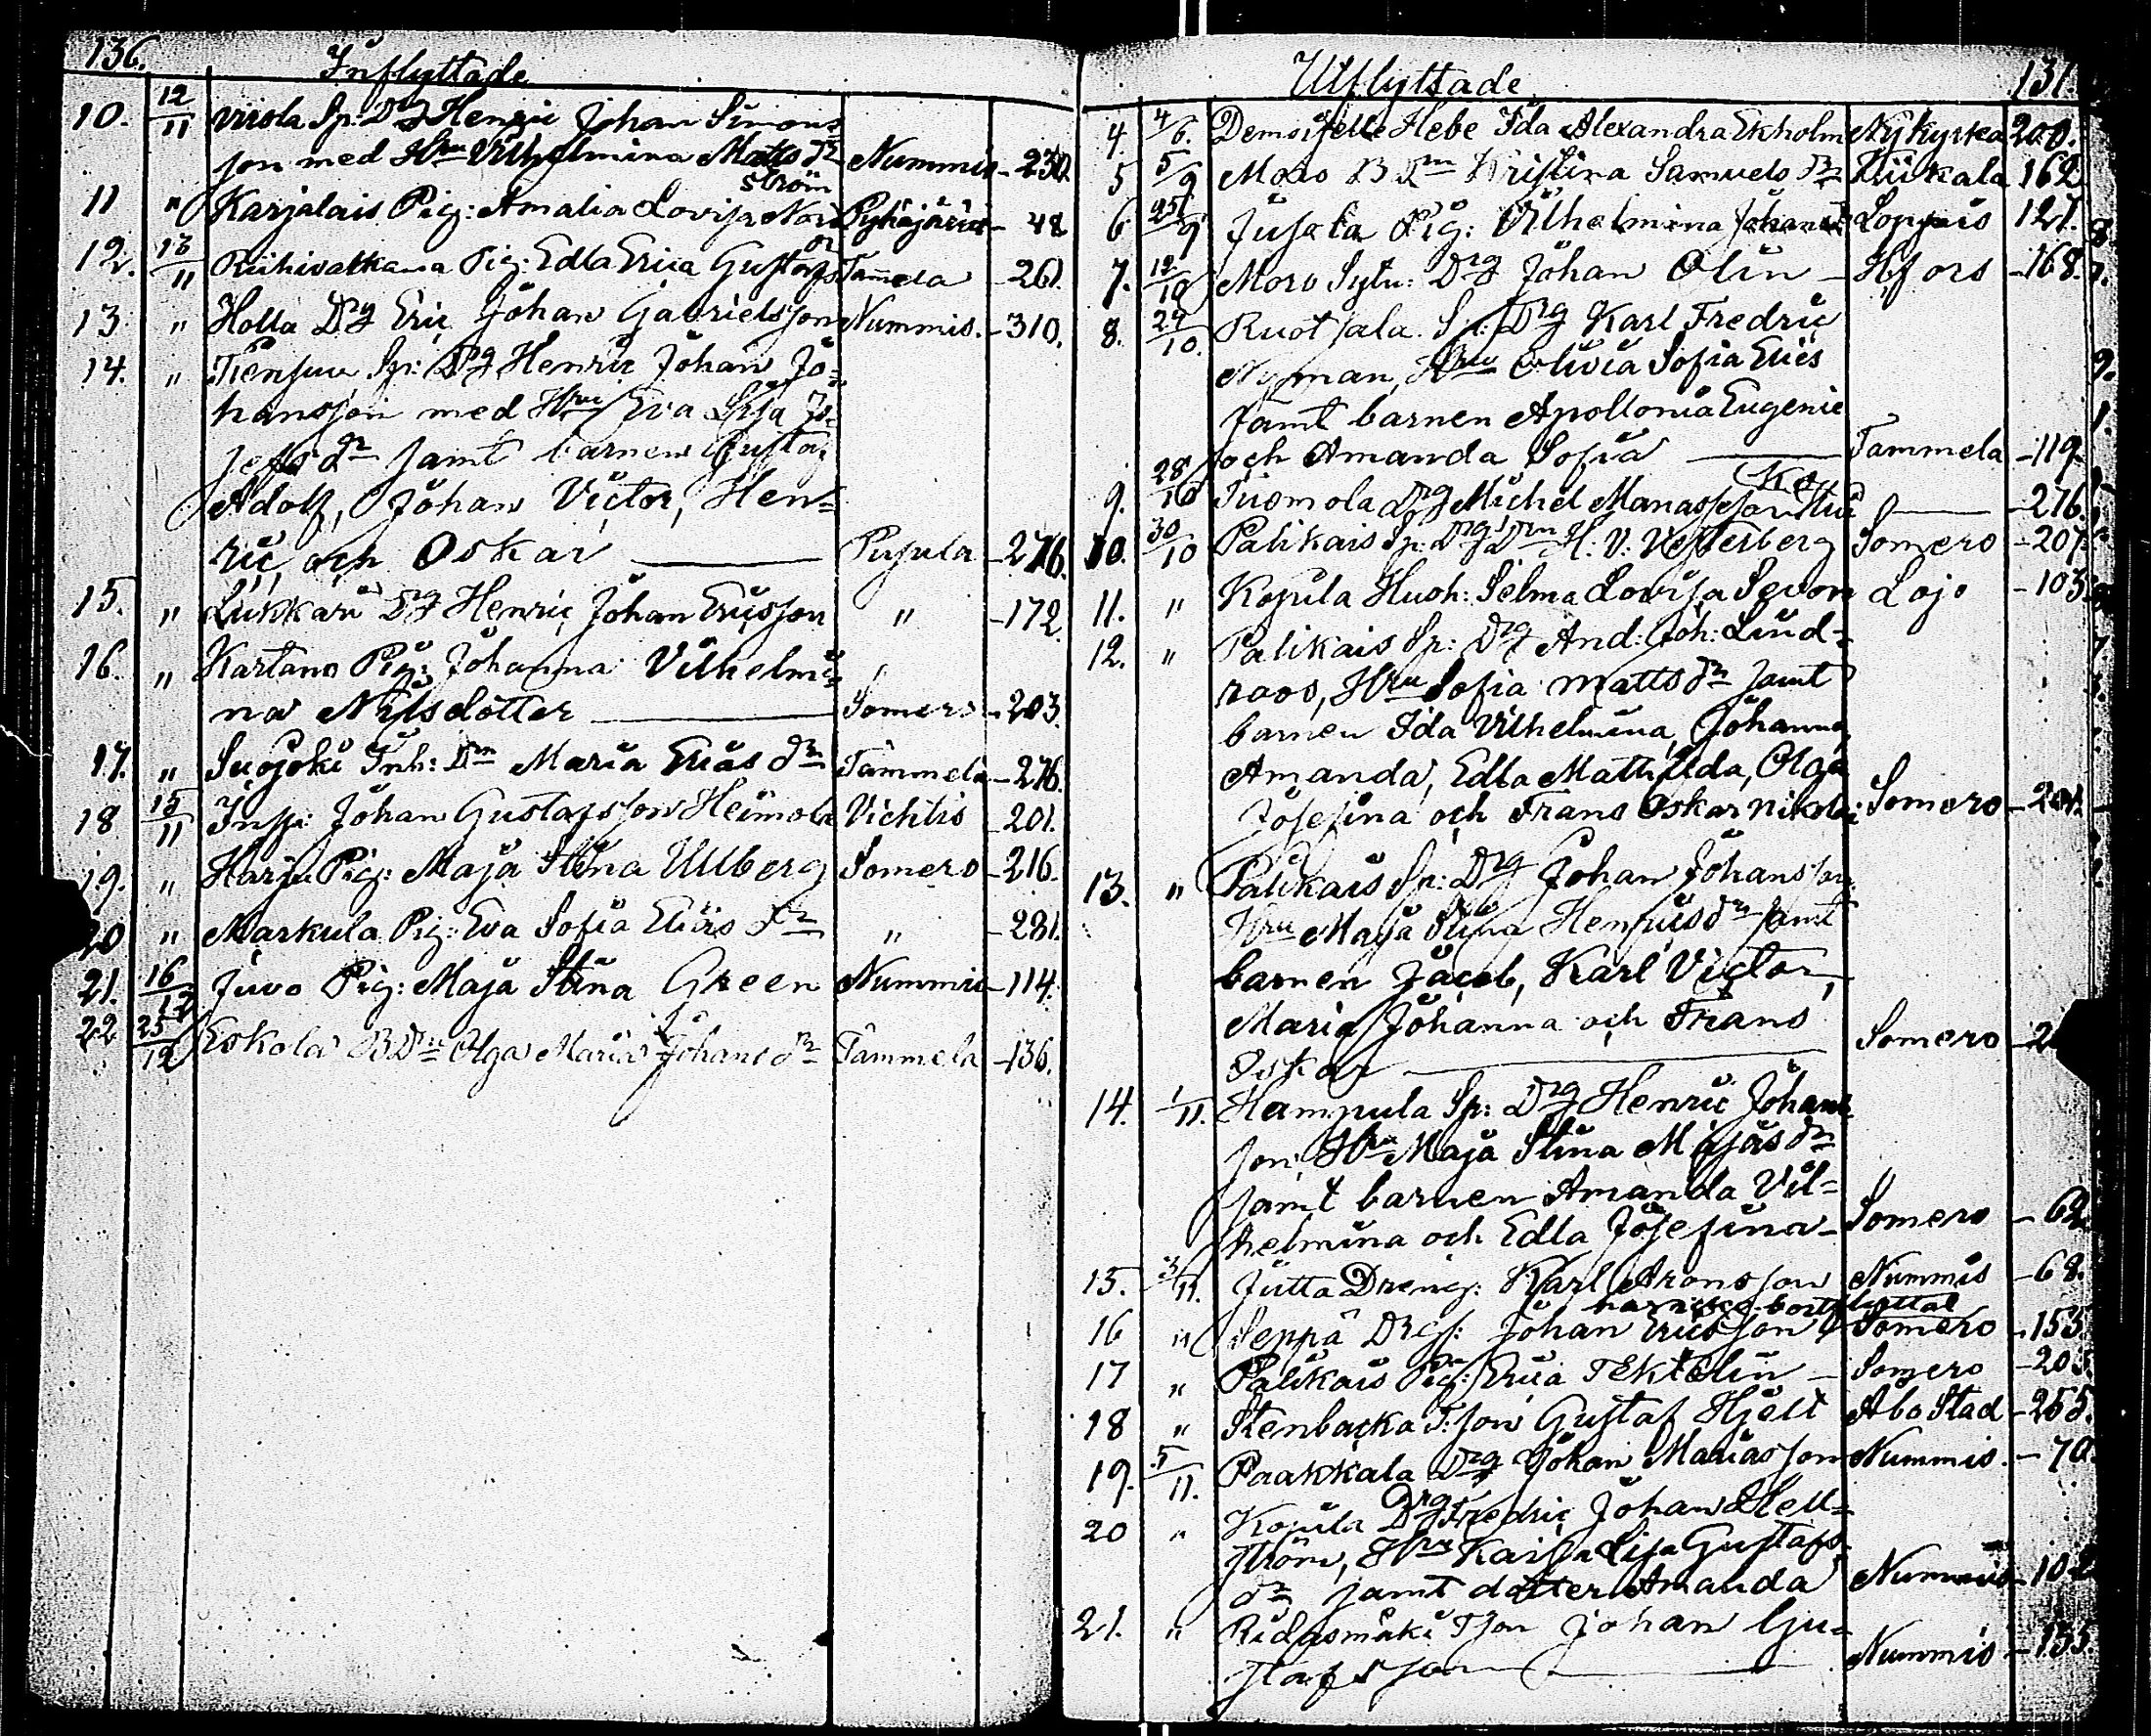 136.
Inflyttade
10. 12/11 Viiola Sp: Drg Henric Johan Simons-
son med Hru Vilhelmina Matts dr Nummis - 230.
ström
11 " Karjalais Pig: Amalia Lovisa Nord Pyhäjärvi - 48
12. 13/11 Riihivalkama Pig: Edla Erica Gustafs dr Tammela - 261.
13 " Holla Drg Eric Johan Gabrielsson Nummis. - 310.
14. " Tiensuu Sp: Drg Henric Johan Jo-
hansson med Hru Eva Lisa Jo-
sefs dr samt barnen Gustaf
Adolf, Johan Victor, Hen-
ric och Oskar Pusula - 276.
15. " Liukkari Drg Henric Johan Ericsson " - 172
16. " Kartano Pig: Johanna Vilhelmi-
na Nilsdotter Somero - 203.
17. " Suojoki Inh: Drn Maria Elias dr Tammela - 276.
18 15/11 Insp: Johan Gustafsson Heimola Vichtis - 201.
19. " Harju Pig: Maja Stina Ullberg Somero - 216.
20 " Markula Pig: Eva Sofia Elias dr " - 281.
21. 16/12 Juvo Pig: Maja Stina Green Nummis - 114.
22 25/12 Eskola BDr Olga Maria Johans dr Tammela - 136.
Utflyttade
131.
4 4/6. Demoiselle Hebe Ida Alexandra Ekholm Nykyrka 200.
5 5/9 Moro BDrn Kristina Samuels dr Kiikala 162
6 25/9 Jusela Pig: Vilhelmina Johans dr Loppis 127.
7. 12/10 Moro Sytn: Drg Johan Olin - Hfors - 168.
8. 24/10. Ruotsala Sp: Drg Karl Fredric
Nyman, Hru Olivia Sofia Erics
samt barnen Apollonia Eugenie
och Amanda Sofia Tammela - 119.
9. 28/10 Tuomola Drg Michel Manasson - 276.
10. 30/10 Palikais Sp: Drg Drn H. V. Vesterberg Somero - 207.
11. " Kopila Hush: Selma Lovisa Sevon Lojo - 103.
12. " Palikais Sp: Drg And: Joh: Lind-
roos, Hru Sofia Matts dr samt
barnen Ida Vilhelmina, Johanna
Amanda, Edla Mathilda, Olga
Josefina och Frans Oskar Nikolai Somero - 201.
13. " Palikais Sp: Drg Johan Johansson
Hru Maja Stina Henrics dr samt
barnen Jacob, Karl Victor,
Maria Johanna och Frans
Oskar Somero - 2
14. 1/11. Hampula Sp: Drg Henric Johans-
son, Hru Maja Stina Majas dr
samt barnen Amanda Vil-
helmina och Edla Josefina - Somero - 62
15. 3/11. Jutta Dreng: Karl Aronsson Nummis - 68.
har icke bortflyttat
16 " Seppä Drg: Johan Ericsson Somero - 153.
17 " Palikais Pig: Erica Tektolin - Somero - 203.
18 " Stenbacka T:son Gustaf Hjelt Åbo Stad - 255.
19. 5/11. Paakkala Drg Johan Mariasson Nummis. - 70.
20 " Kopila Drg Fredric Johan Hell-
ström, Hru Kaisa Lisa Gustafs
dr samt dotter Amanda Nummis - 102
21. " Ridasmäki Tson Johan Gu-
stafsson Nummis - 155.